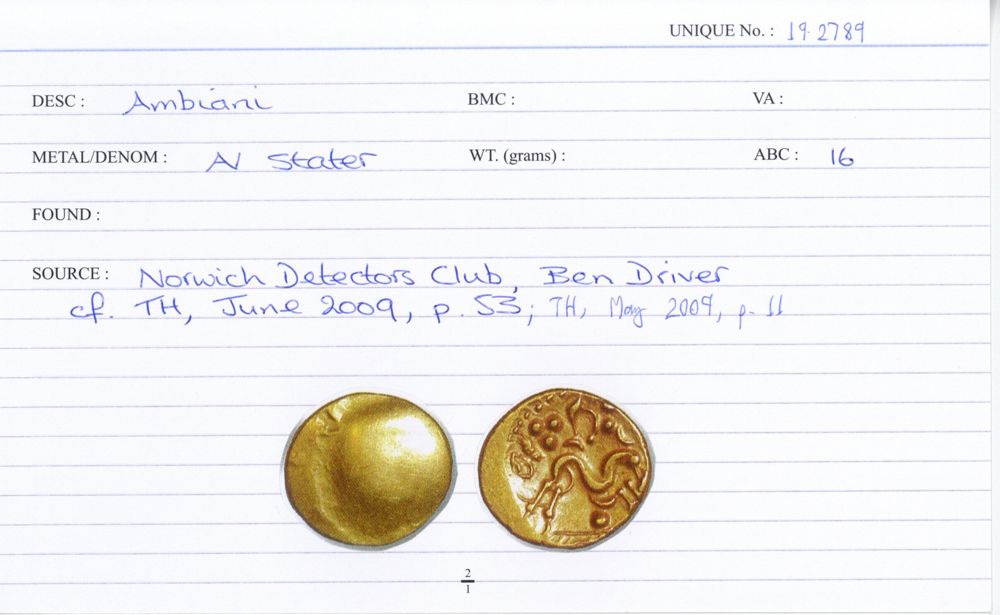 UNIQUE No. : 19.2789
DESC : Ambiani BMC : VA :
METAL/DENOM : AV Stater WT. (grams) : ABC : 16
FOUND :
SOURCE : Norwich Detectors Club, Ben Driver
cf. TH, June 2009, p. 53; TH, May 2009, p. 11
2
1